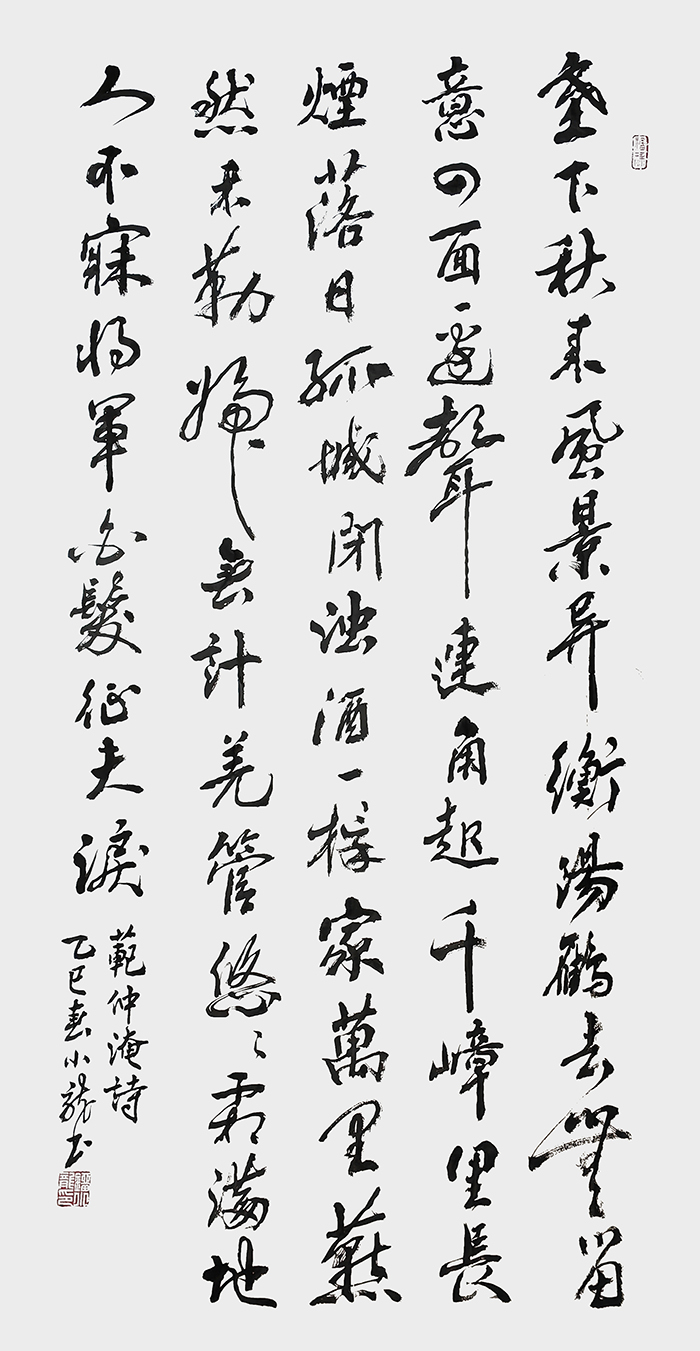 塞下秋来風景异衡陽鶴去無留
意四面邊聲連角起千嶂里長
煙落日孤城閉浊酒一杯家萬里燕
然未勒歸無計羌管悠々霜滿地
人不寐将軍白髮征夫淚
範仲淹詩
乙巳春小龍书